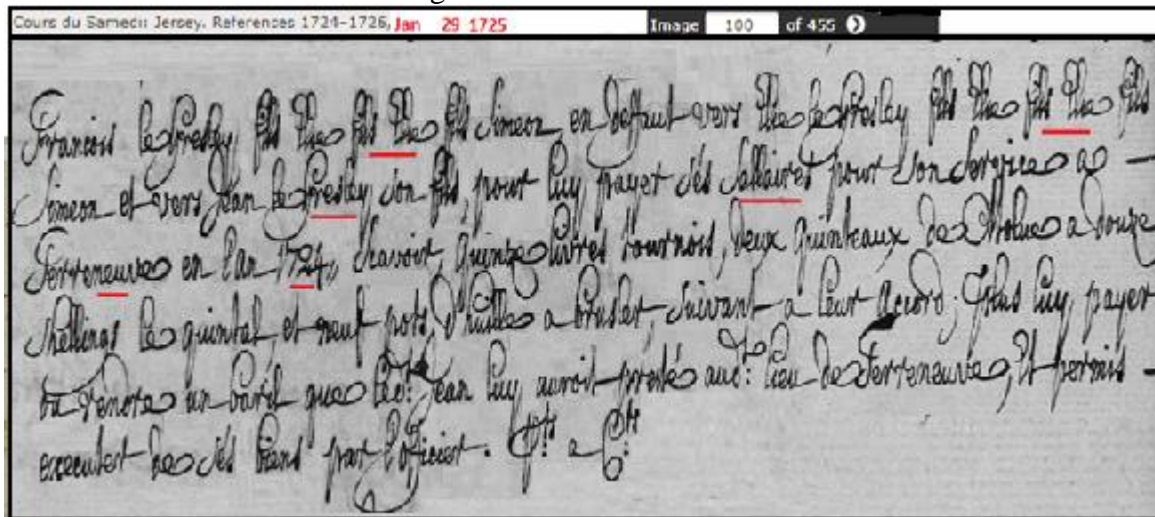 Cours du Samedi: Jersey. References 1724-1726, Jan 29 1725 Image 100 of 455
Francois Le Gresley, fils Tho fils Tho fils Simeon en deffaut vers Tho Le Gresley fils Tho fils Tho fils
Simeon et vers Jean Le Gresley son fils, pour luy payer sés sallaires pour son service a
Terreneuve en l'an 1724, Scavoir, quinze livres tournois, deux quinteaux de Molue a douze
shellings le quintal, et neuf pots d'huille a brusler, suivant a leur accord; Plus luy payer
ou rendre un baril que led: Jean luy auroit presté aud: lieu de Terreneuve, Et permis
executer de sés biens par l'officier.